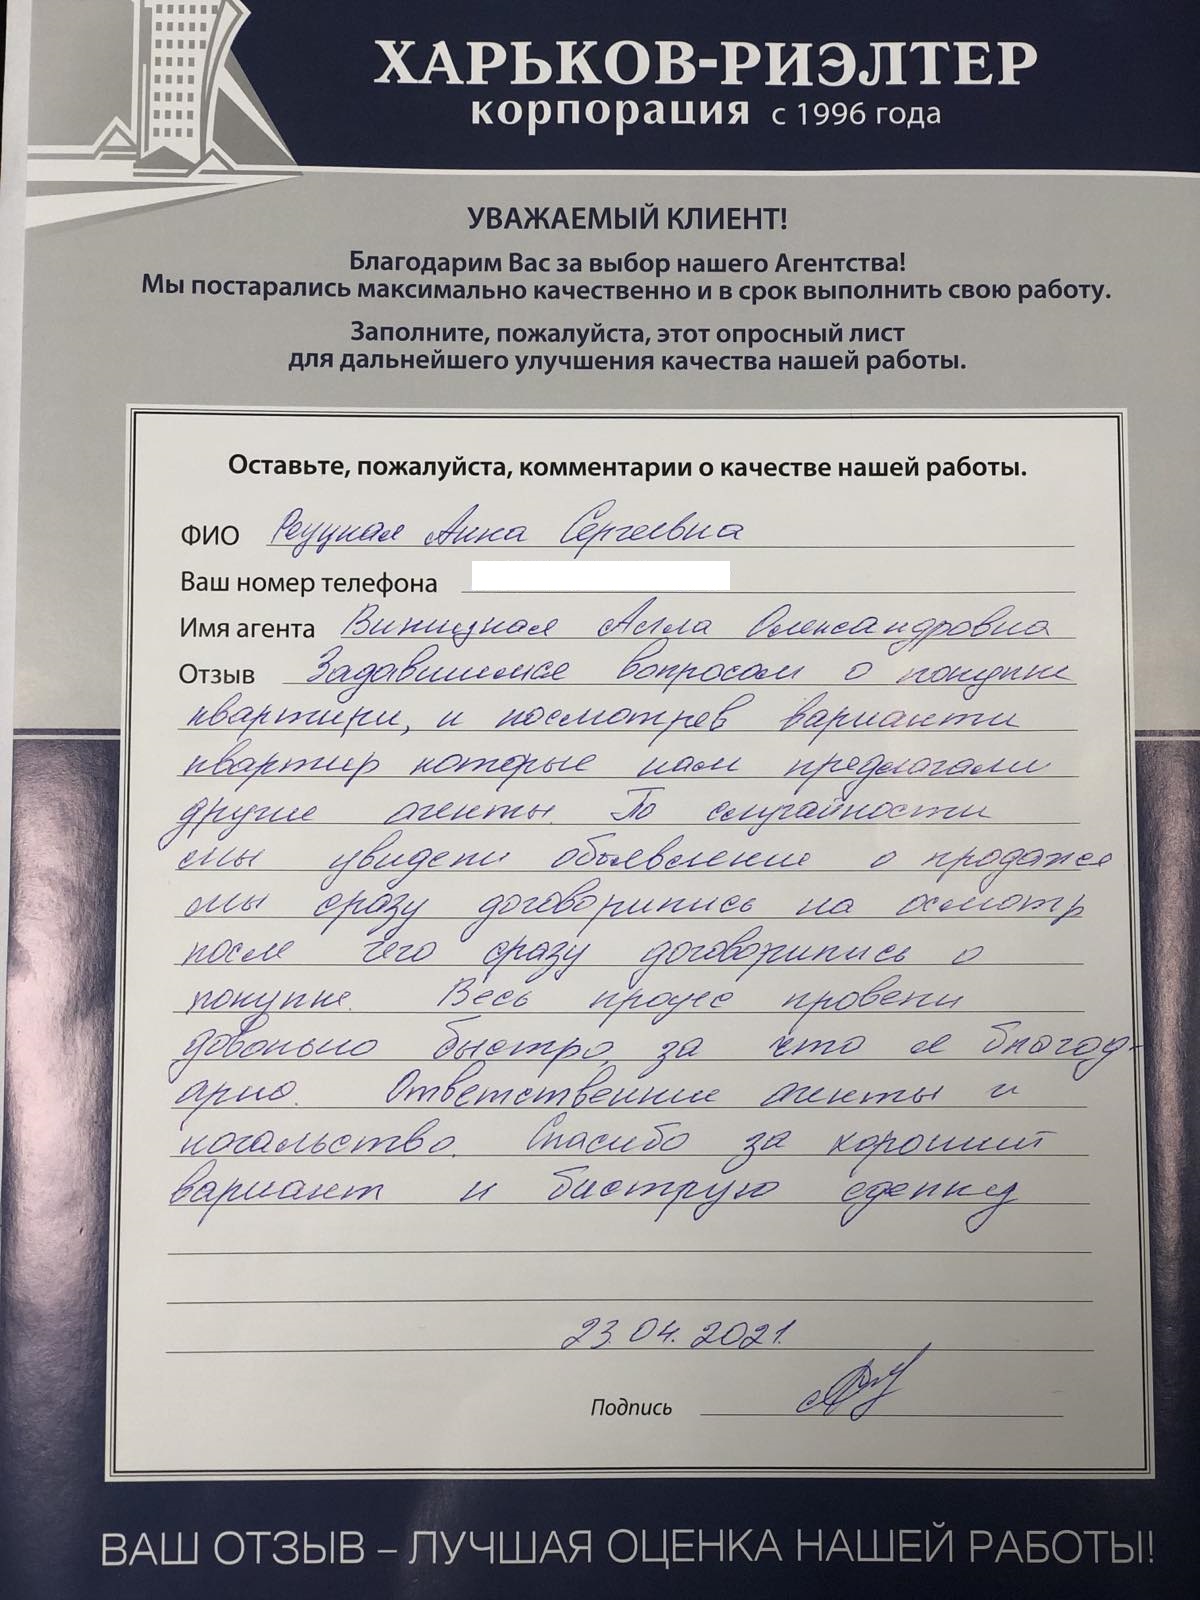 ХАРЬКОВ-РИЭЛТЕР
корпорация с 1996 года
УВАЖАЕМЫЙ КЛИЕНТ!
Благодарим Вас за выбор нашего Агентства!
Мы постарались максимально качественно и в срок выполнить свою работу.
Заполните, пожалуйста, этот опросный лист
для дальнейшего улучшения качества нашей работы.
Оставьте, пожалуйста, комментарии о качестве нашей работы.
ФИО Реуцкая Анна Сергеевна
Ваш номер телефона
Имя агента Виницкая Алла Олександровна
Отзыв Задавшимся вопросом о покупке
квартири, и посмотрев варианти
квартир которые нам предлагали
другие агенты. По случайности
мы увидели обьявление о продаже
мы сразу договорились на осмотр
после чего сразу договорились о
покупке. Весь процес провели
довольно быстро, за что я благод-
арна. Ответственние агенты и
начальство. Спасибо за хороший
вариант и биструю сделку
23.04.2021.
Подпись
ВАШ ОТЗЫВ – ЛУЧШАЯ ОЦЕНКА НАШЕЙ РАБОТЫ!